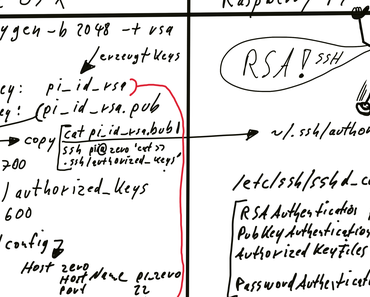 ygen -b 2048 -t rsa
erzeugt Keys
ey: pi_id_rsa
ey: pi_id_rsa.pub
copy cat pi_id_rsa.bub |
ssh pi@zero 'cat >>
.ssh/authorized_keys'
700
/authorized_keys
600
/config
Host zero
HostName pi_zero
Port 22
RSA! SSH
~/.ssh/author
/etc/ssh/sshd_co
RSA Authentication
PubKey Authentication
Authorized KeyFiles
Password Authenticat